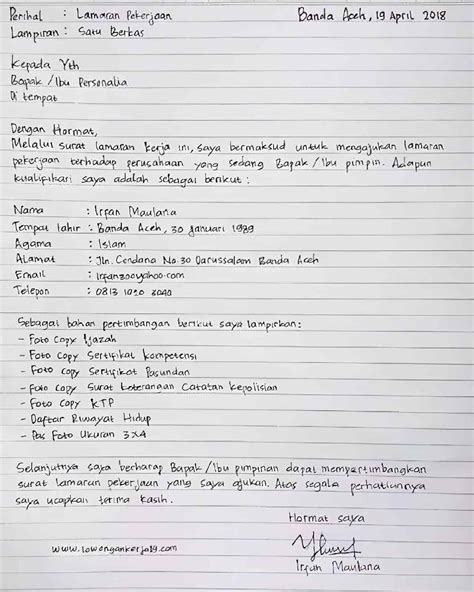 Perihal : Lamaran Pekerjaan Banda Aceh, 19 April 2018
Lampiran : Satu Berkas
Kepada Yth
Bapak /Ibu Personalia
Di tempat
Dengan Hormat,
Melalui surat lamaran kerja ini, saya bermaksud untuk mengajukan lamaran
pekerjaan terhadap perusahaan yang sedang Bapak /Ibu pimpin. Adapun
kualifikari saya adalah sebagai berikut :
Nama : Irfan Maulana
Tempat lahir : Banda Aceh, 30 Januari 1989
Agama : Islam
Alamat : Jln. Cendana No.30 Darussalam Banda Aceh
Email : Irfanzooyahoo.com
Telepon : 0813 1020 3040
Sebagai bahan pertimbangan berikut saya lampirkan:
- Foto Copy Ijazah
- Foto Copy Sertifikat Kompetensi
- Foto Copy Sertifikat Pasundan
- Foto Copy Surat Keterangan Catatan Kepolisian
- Foto Copy KTP
- Daftar Riwayat Hidup
- Pas Foto Ukuran 3X4
Selanjutnya saya berharap Bapak /Ibu pimpinan dapat mempertimbangkan
surat lamaran pekerjaan yang saya ajukan. Atas segala perhatiannya
saya ucapkan terima kasih.
Hormat saya
www.lowongankerja19.com
Irfan Maulana